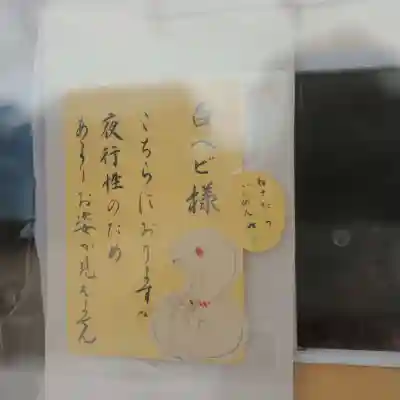 白ヘビ様
こちらにおります
夜行性のため
あまりお姿が見えません
ごめん